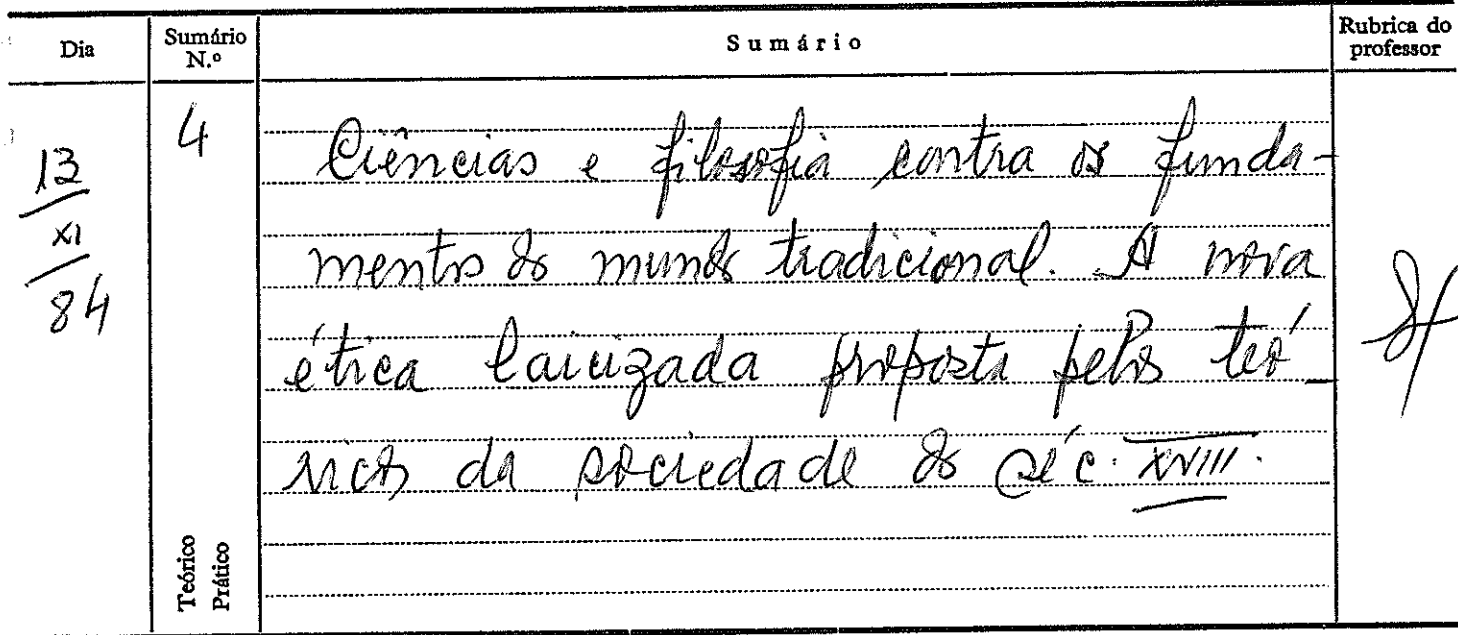 Dia
Sumário N.º
Sumário
Rubrica do professor
13
XI
84
4
Ciências e filosofia contra os funda-
mentos do mundo tradicional. A nova
ética laicizada proposta pelos teó
ricos da sociedade do séc. XVIII.
Teórico
Prático